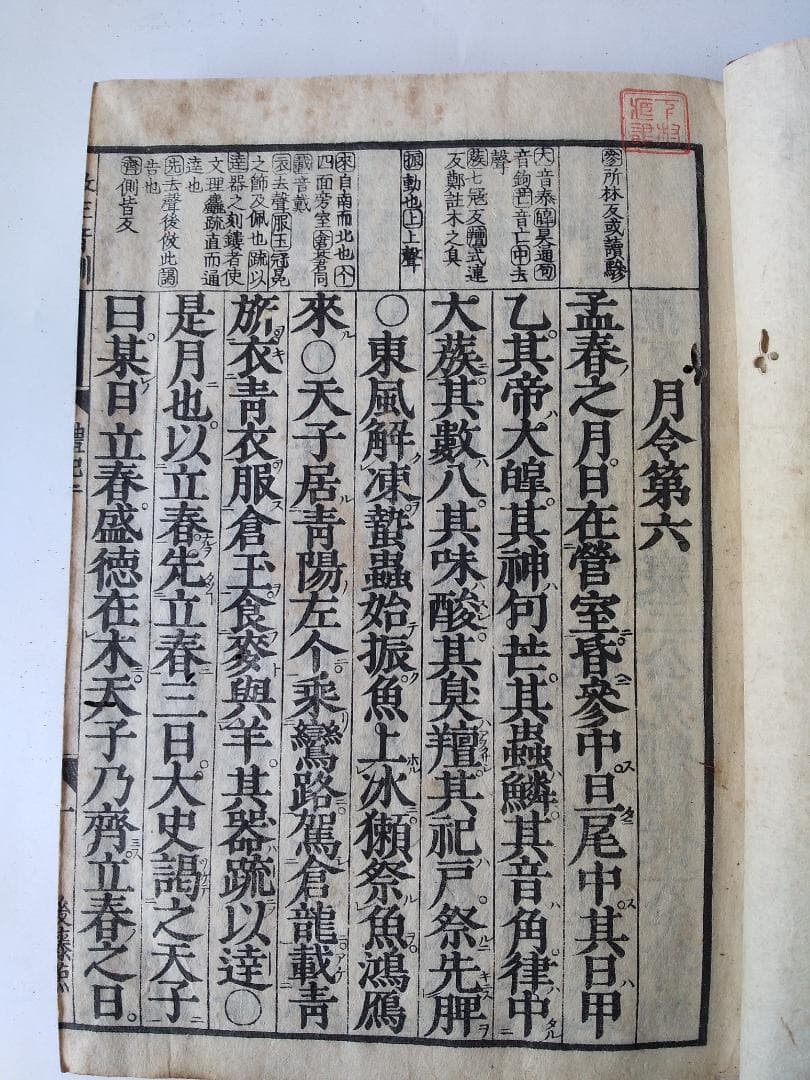 參所林反或讀驂
大音泰皥昊通句
音鉤芒音亡中去
聲
蔟七冠反羶式連
反鄭註木之臭
振動也上上聲
來自南而北也个
四面旁室倉同
載音戴
衣去聲服玉冠冕
之飾及佩也疏以
達器之刻鏤者使
文理麤疏直而通
達也
先去聲後倣此謁
告也
齊側皆反
月令第六
孟春之月日在營室昏參中旦尾中其日甲
乙其帝大皥其神句芒其蟲鱗其音角律中
大蔟其數八其味酸其臭羶其祀戶祭先脾
○東風解凍蟄蟲始振魚上冰獺祭魚鴻鴈
來○天子居靑陽左个乘鸞路駕倉龍載靑
旂衣靑衣服倉玉食麥與羊其器疏以達○
是月也以立春先立春三日大史謁之天子
曰某日立春盛德在木天子乃齊立春之日
禮記二
一
後藤點